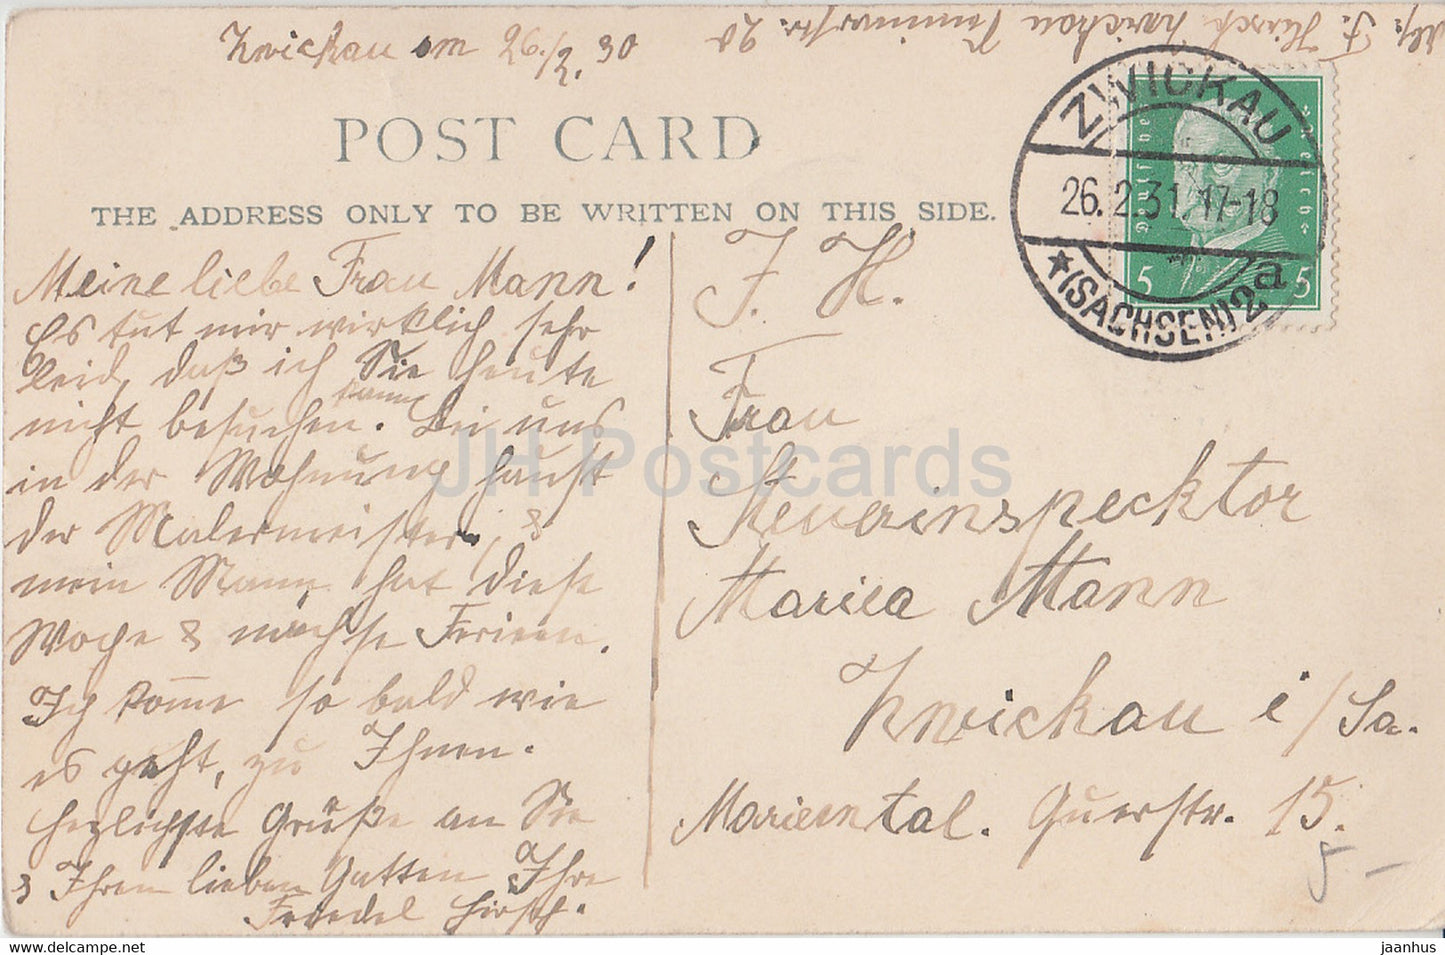 Zwickau am 26./2. 30
Abs: F. Hirsch Zwickau 20
POST CARD
THE ADDRESS ONLY TO BE WRITTEN ON THIS SIDE.
ZWICKAU
26.2.31.17-18
* (SACHSEN) 2 a
Deutsches Reich
5 5
Meine liebe Frau Mann!
Es tut mir wirklich sehr
leid, daß ich Sie heute
nicht besuchen kann. Bei uns
in der Wohnung haust
der Malermeister, &
mein Mann hat diese
Woche & nächste Ferien.
Ich komme so bald wie
es geht, zu Ihnen.
Herzlichste Grüße an Sie
& Ihren lieben Gatten Ihre
Friedel Hirsch.
F. H.
Frau
Steuerinspecktor
Mariea Mann
Zwickau i/Sa.
Marienental. Querstr. 15.
5 -
JH Postcards
jaanhus
www.delcampe.net